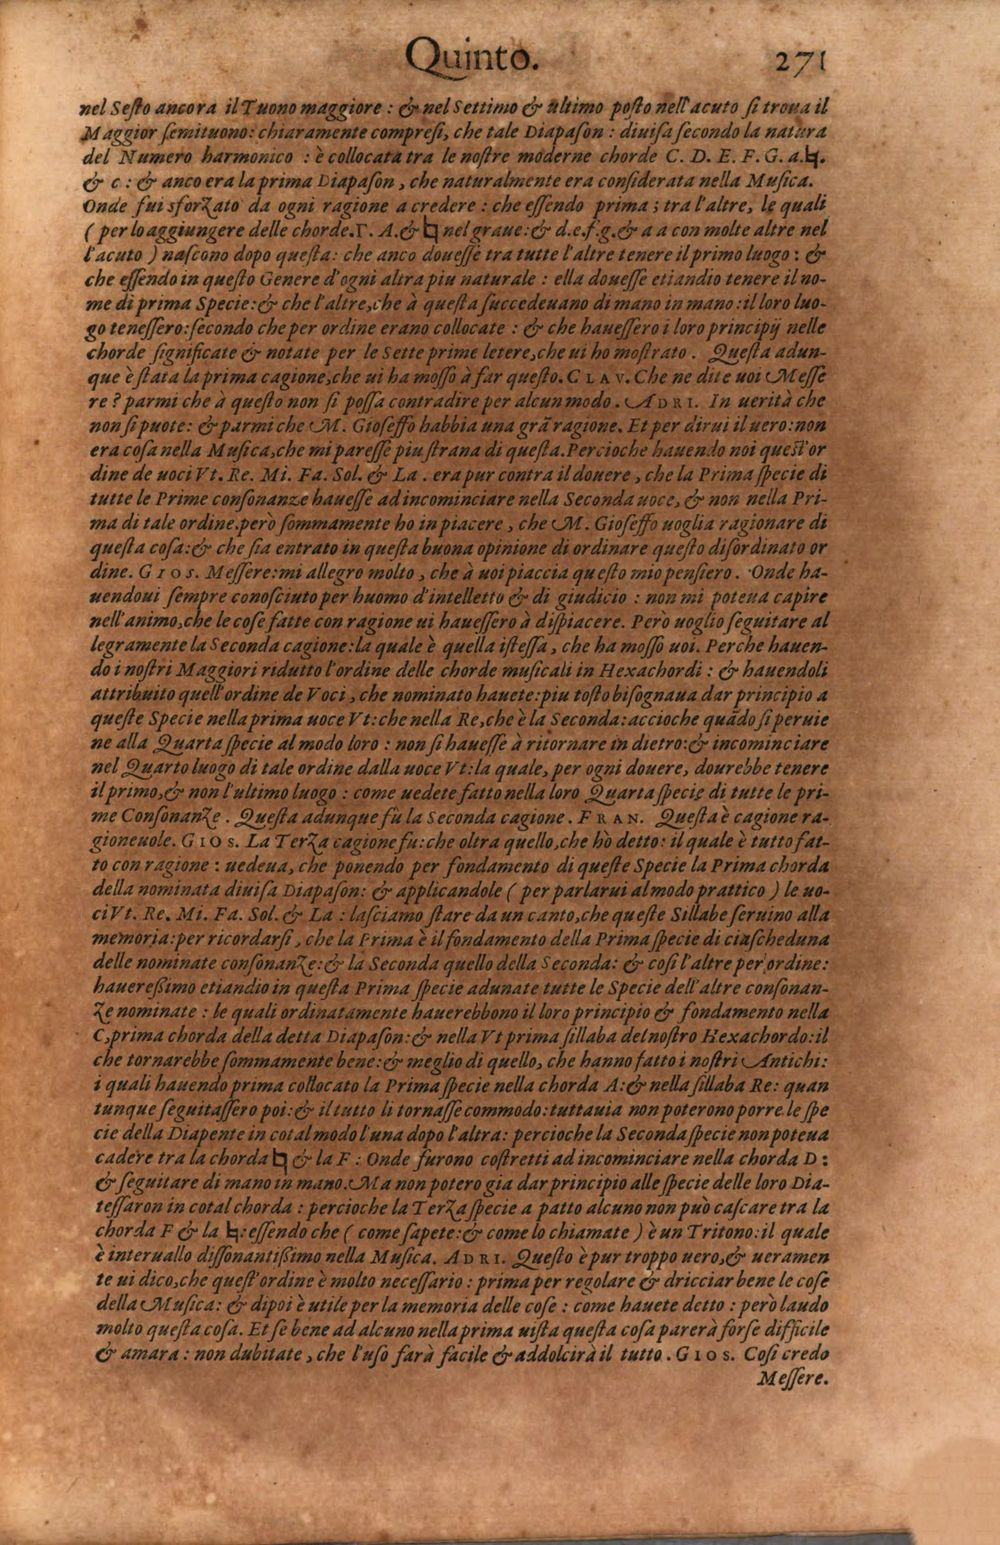 Quinto. 271
nel Seſto ancora il Tuono maggiore : & nel Settimo & ultimo poſto nell'acuto ſi troua il
Maggior ſemituono: chiaramente compreſi, che tale Diapaſon : diuiſa ſecondo la natura
del Numero harmonico : è collocata tra le noſtre moderne chorde C. D. E. F. G. a. ♮.
& c : & anco era la prima Diapaſon, che naturalmente era conſiderata nella Muſica.
Onde fui sforzato da ogni ragione a credere : che eſſendo prima ; tra l'altre, le quali
( per lo aggiungere delle chorde. Γ. A. & ♮ nel graue: & d.e.f.g. & a a con molte altre nel
l'acuto ) naſcono dopo queſta: che anco doueſſe tra tutte l'altre tenere il primo luogo : &
che eſſendo in queſto Genere d'ogni altra piu naturale : ella doueſſe etiandio tenere il no-
me di prima Specie: & che l'altre, che à queſta ſuccedeuano di mano in mano: il loro luo-
go teneſſero: ſecondo che per ordine erano collocate : & che haueſſero i loro principij nelle
chorde ſignificate & notate per le Sette prime letere, che ui ho moſtrato. Queſta adun-
que è ſtata la prima cagione, che ui ha moſſo à far queſto. CLAV. Che ne dite uoi Meſſe
re? parmi che à queſto non ſi poſſa contradire per alcun modo. ADRI. In uerità che
non ſi puote: & parmi che M. Gioſeffo habbia una grã ragione. Et per dirui il uero: non
era coſa nella Muſica, che mi pareſſe piu ſtrana di queſta. Percioche hauendo noi queſt'or
dine de uoci Vt. Re. Mi. Fa. Sol. & La . era pur contra il douere, che la Prima ſpecie di
tutte le Prime conſonanze haueſſe ad incominciare nella Seconda uoce, & non nella Pri-
ma di tale ordine. però ſommamente ho in piacere, che M. Gioſeffo uoglia ragionare di
queſta coſa: & che ſia entrato in queſta buona opinione di ordinare queſto diſordinato or
dine. GIOS. Meſſere: mi allegro molto, che à uoi piaccia queſto mio penſiero. Onde ha-
uendoui ſempre conoſciuto per huomo d'intelletto & di giudicio : non mi poteua capire
nell'animo, che le coſe fatte con ragione ui haueſſero à diſpiacere. Però uoglio ſeguitare al
legramente la Seconda cagione: la quale è quella iſteſſa, che ha moſſo uoi. Perche hauen-
do i noſtri Maggiori ridutto l'ordine delle chorde muſicali in Hexachordi : & hauendoli
attribuito quell'ordine de Voci, che nominato hauete: piu toſto biſognaua dar principio a
queſte Specie nella prima uoce Vt: che nella Re, che è la Seconda: accioche quãdo ſi peruie
ne alla Quarta ſpecie al modo loro : non ſi haueſſe à ritornare in dietro: & incominciare
nel Quarto luogo di tale ordine dalla uoce Vt: la quale, per ogni douere, dourebbe tenere
il primo, & non l'ultimo luogo : come uedete fatto nella loro Quarta ſpecie di tutte le pri-
me Conſonanze. Queſta adunque fù la Seconda cagione. FRAN. Queſta è cagione ra-
gioneuole. GIOS. La Terza cagione fu: che oltra quello, che hò detto: il quale è tutto fat-
to con ragione : uedeua, che ponendo per fondamento di queſte Specie la Prima chorda
della nominata diuiſa Diapaſon: & applicandole ( per parlarui al modo prattico ) le uo-
ci Vt. Re. Mi. Fa. Sol. & La : laſciamo ſtare da un canto, che queſte Sillabe ſeruino alla
memoria: per ricordarſi, che la Prima è il fondamento della Prima ſpecie di ciaſcheduna
delle nominate conſonanze: & la Seconda quello della Seconda: & coſi l'altre per ordine:
hauereßimo etiandio in queſta Prima ſpecie adunate tutte le Specie dell'altre conſonan-
ze nominate : le quali ordinatamente hauerebbono il loro principio & fondamento nella
C, prima chorda della detta Diapaſon: & nella Vt prima ſillaba del noſtro Hexachordo: il
che tornarebbe ſommamente bene: & meglio di quello, che hanno fatto i noſtri Antichi:
i quali hauendo prima collocato la Prima ſpecie nella chorda A: & nella ſillaba Re: quan
tunque ſeguitaſſero poi: & il tutto li tornaſſe commodo: tuttauia non poterono porre le ſpe
cie della Diapente in cotal modo l'una dopo l'altra: percioche la Seconda ſpecie non poteua
cadere tra la chorda ♮ & la F : Onde furono coſtretti ad incominciare nella chorda D :
& ſeguitare di mano in mano. Ma non potero gia dar principio alle ſpecie delle loro Dia-
teſſaron in cotal chorda : percioche la Terza ſpecie a patto alcuno non può caſcare tra la
chorda F & la ♮: eſſendo che ( come ſapete: & come lo chiamate ) è un Tritono: il quale
è interuallo diſſonantißimo nella Muſica. ADRI. Queſto è pur troppo uero, & ueramen
te ui dico, che queſt'ordine è molto neceſſario : prima per regolare & dricciar bene le coſe
della Muſica: & dipoi è utile per la memoria delle coſe : come hauete detto : però laudo
molto queſta coſa. Et ſe bene ad alcuno nella prima uiſta queſta coſa parerà forſe difficile
& amara : non dubitate, che l'uſo farà facile & addolcirà il tutto. GIOS. Coſi credo
Meſſere.